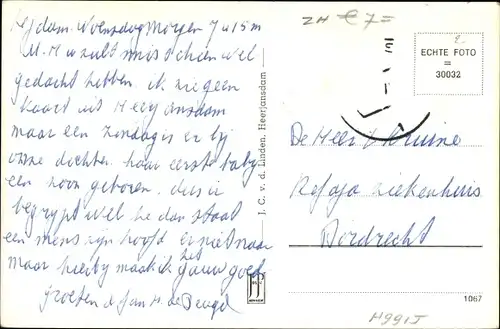 H'jdam. Woensdagmorgen 7 u 15 m
M. H. u zult misschien wel
gedacht hebben. ik zie geen
kaart uit Heerjansdam
maar een zondag is er bij
onze dochter haar eerste baby
een zoon geboren. dus u
begrypt wel hoe dan staat
een mens zijn hoofd er niet naar
maar hierby maak ik het gauw goed
groeten d Jan H. de Beugel
J. C. v. d. Linden, Heerjansdam
ZH € 7=
ECHTE FOTO
=
30032
De Heer
Refaja Ziekenhuis
Dordrecht
1067
H991J